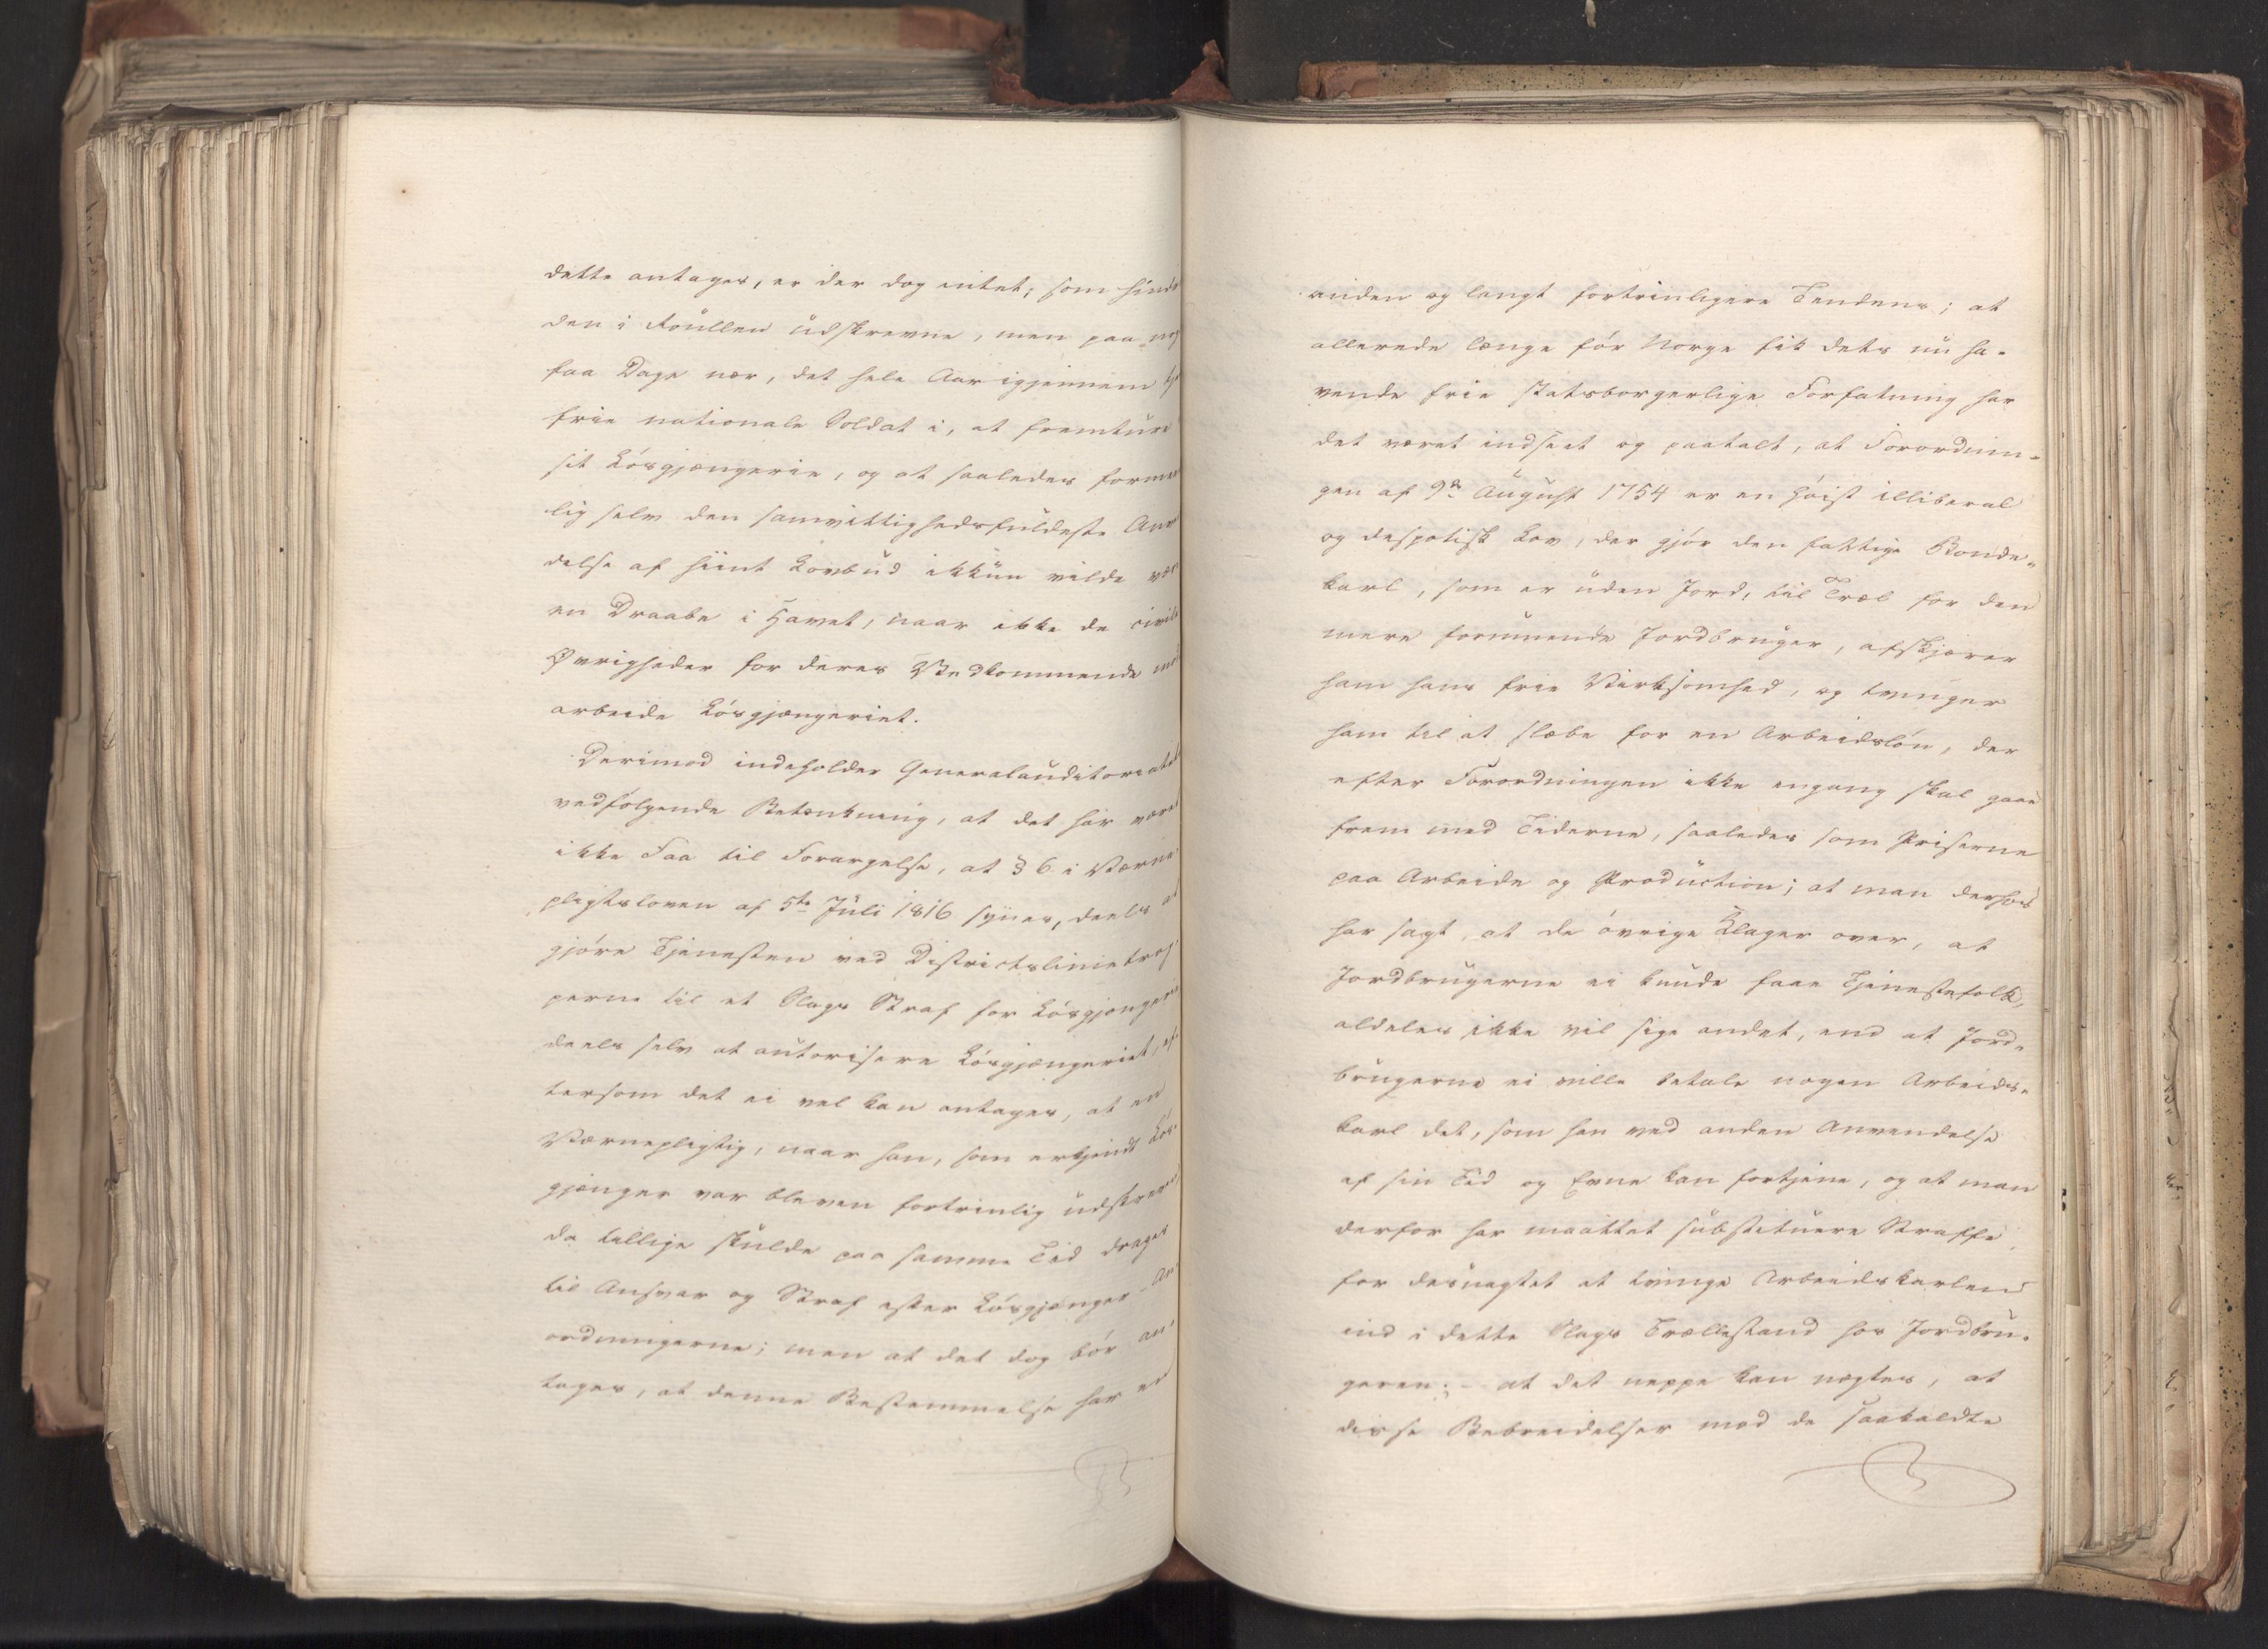 dette antages, er der dog intet, som hind
den i Roullen udskrevne, men paa no
faa Dage nær, det hele Aar igjennem tje
frie nationale Soldat i, at fremture
sit Løsgjængerie, og at saaledes formee
lig selv den samvittighedsfuldeste Anv
delse af hiint Lovbud ikkun vilde vær
en Draabe i Havet, naar ikke de civile
Øvrigheder for deres Vedkommende mo
arbeide Løsgjængeriet.
Derimod indeholder Generalauditoriatet
vedfølgende Betænkning, at det har været
ikke Faa til Forargelse, at § 6 i Værne
pligtsloven af 5te Juli 1816 synes, deels at
gjøre Tjenesten ved Districtslinietrop
perne til et Slags Straf for Løsgjængere
deels selv at autorisere Løsgjængeriet, ef-
tersom det ei vel kan antages, at en
Værnepligtig, naar han, som erkjendt Løs-
gjænger var bleven fortrinlig udskreven,
da tillige skulde paa samme Tid drages
til Ansvar og Straf efter Løsgjænger-An-
ordningerne; men at det dog bør an-
tages, at denne Bestemmelse har en
anden og langt fortrinligere Tendens; at
allerede længe før Norge fik dets nu ha-
vende frie statsborgerlige Forfatning har
det været indseet og paatalt, at Forordnin-
gen af 9de August 1754 er en høist illiberal
og despotisk Lov, der gjør den fattige Bonde-
karl, som er uden Jord, til Træl for den
mere formuende Jordbruger, afskjærer
ham hans frie Virksomhed, og tvinger
ham til at slæbe for en Arbeidsløn, der
efter Forordningen ikke engang skal gaae
frem med Tiderne, saaledes som Priserne
paa Arbeide og Production; at man derhos
har sagt, at de øvrige Klager over, at
Jordbrugerne ei kunde faae Tjenestefolk,
aldeles ikke vil sige andet, end at Jord-
brugerne ei ville betale nogen Arbeids-
karl det, som han ved anden Anvendelse
af sin Tid og Evne kan fortjene, og at man
derfor har maattet substituere Straffe
for desuagtet at tvinge Arbeidskarlen
ind i dette Slags Trællestand hos Jordbru-
geren; – at det neppe kan nægtes, at
disse Bebreidelser mod de saakaldte